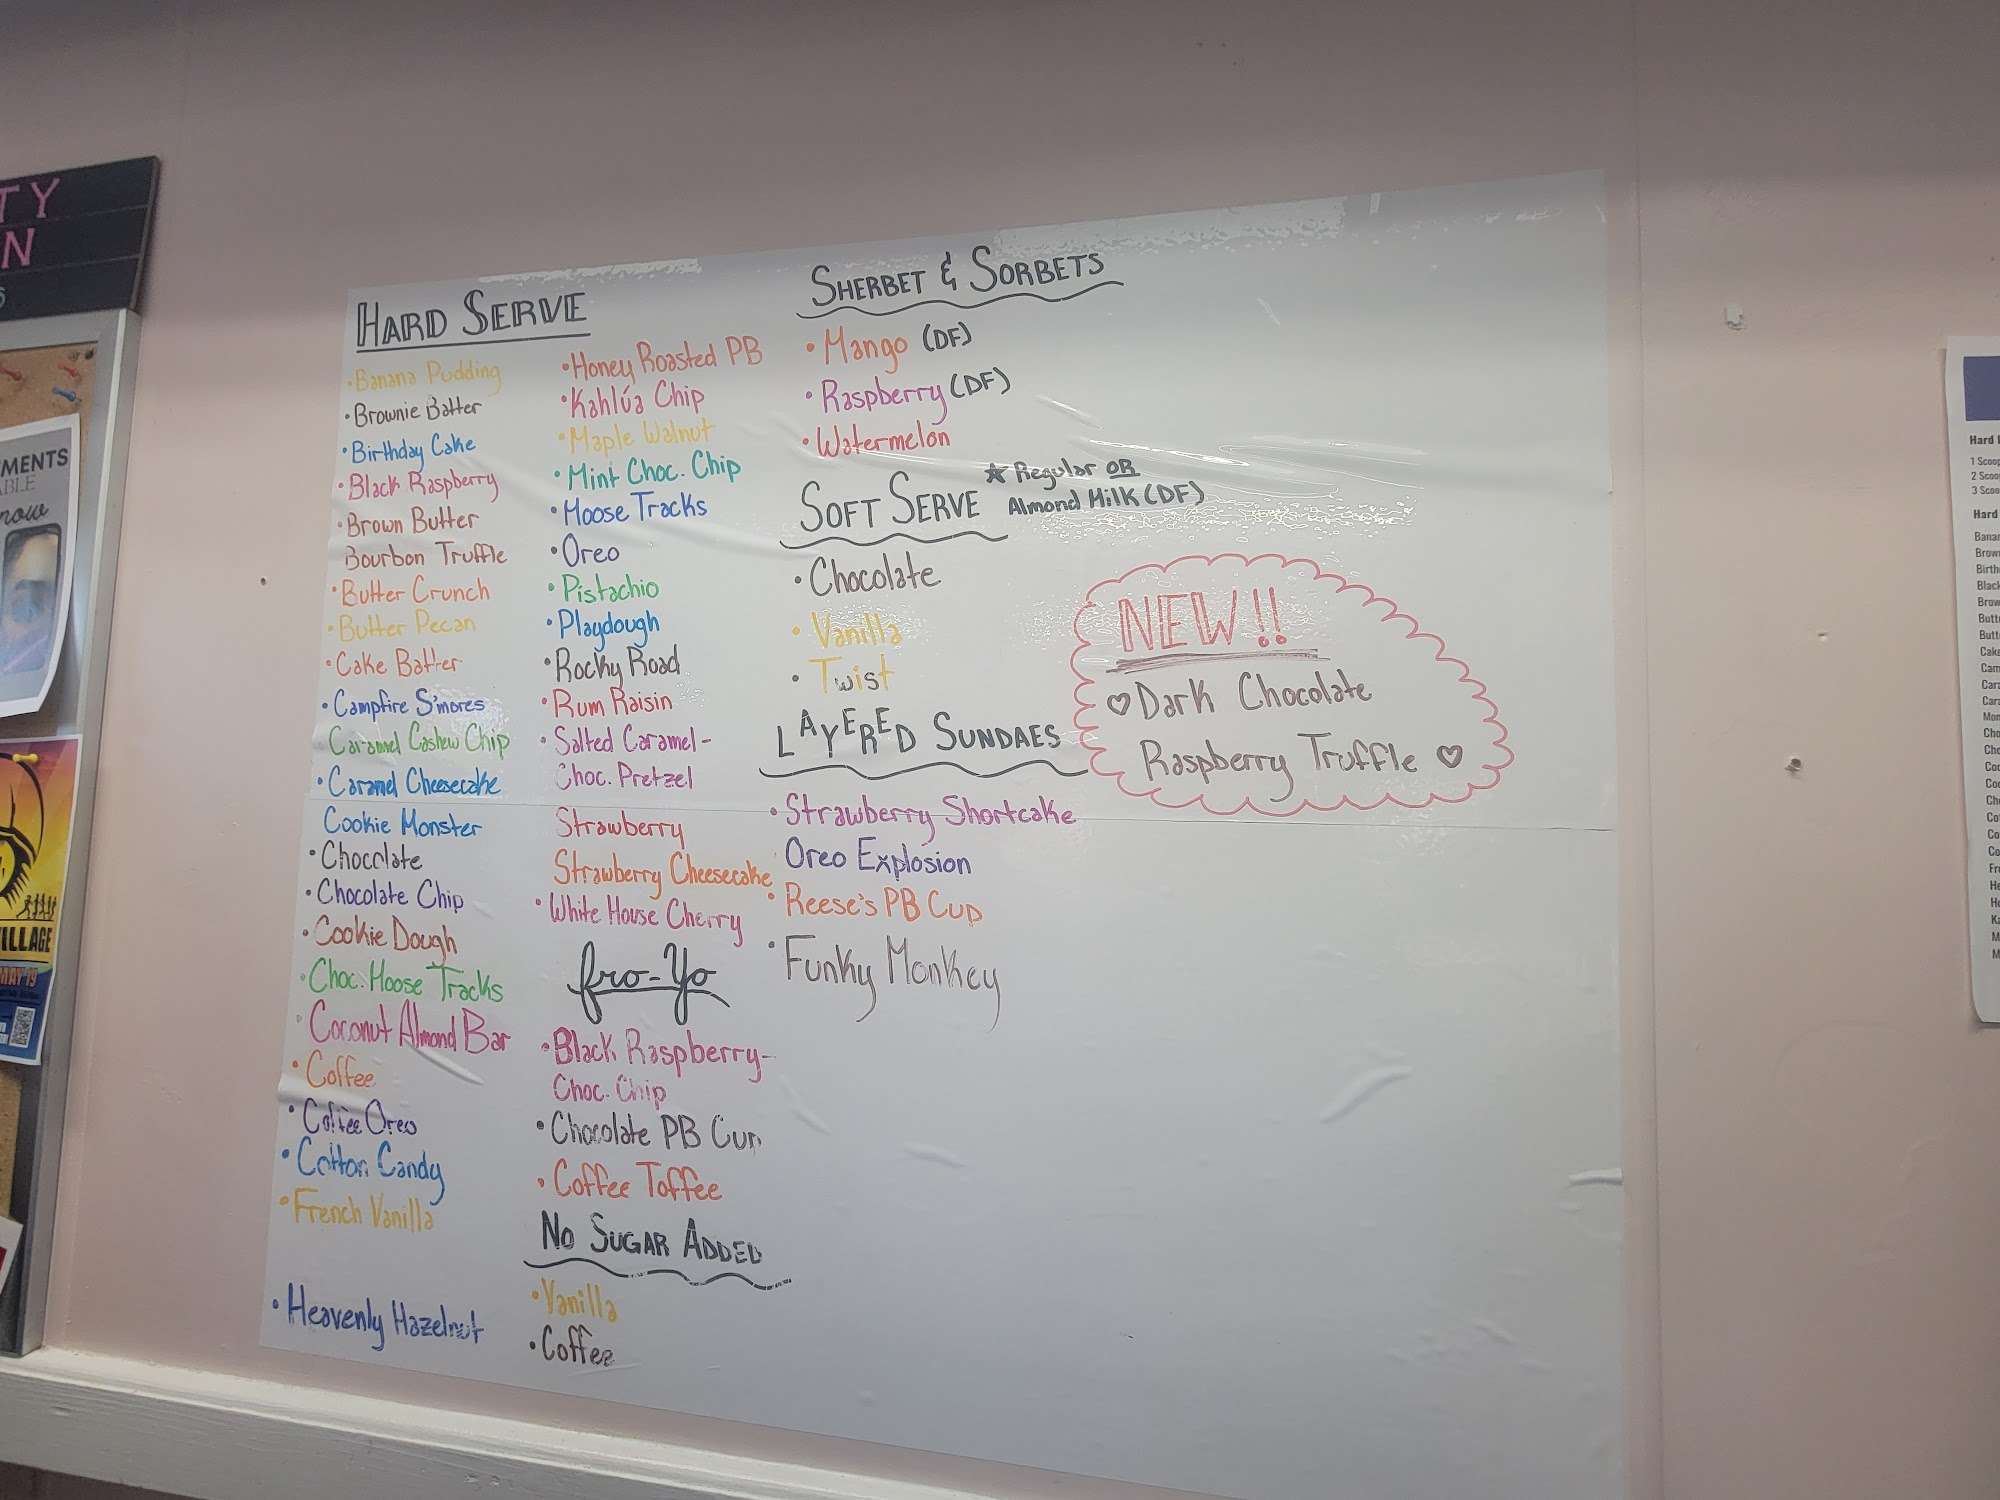 TY
N
MENTS
ABLE
now
VILLAGE
MAY 19
HARD SERVE
• Banana Pudding
• Brownie Batter
• Birthday Cake
• Black Raspberry
• Brown Butter
Bourbon Truffle
• Butter Crunch
• Butter Pecan
• Cake Batter
• Campfire S'mores
Caramel Cashew Chip
• Caramel Cheesecake
Cookie Monster
• Chocolate
• Chocolate Chip
• Cookie Dough
• Choc. Moose Tracks
• Coconut Almond Bar
• Coffee
• Coffee Oreo
• Cotton Candy
• French Vanilla
• Heavenly Hazelnut
• Honey Roasted PB
• Kahlúa Chip
• Maple Walnut
• Mint Choc. Chip
• Moose Tracks
• Oreo
• Pistachio
• Playdough
• Rocky Road
• Rum Raisin
• Salted Caramel-
Choc. Pretzel
Strawberry
Strawberry Cheesecake
• White House Cherry
fro-Yo
• Black Raspberry-
Choc. Chip
• Chocolate PB Cup
• Coffee Toffee
NO SUGAR ADDED
• Vanilla
• Coffee
SHERBET & SORBETS
• Mango (DF)
• Raspberry (DF)
• Watermelon
SOFT SERVE ★ Regular OR
Almond Milk (DF)
• Chocolate
• Vanilla
• Twist
LAYERED SUNDAES
• Strawberry Shortcake
Oreo Explosion
• Reese's PB Cup
• Funky Monkey
NEW!!
♡ Dark Chocolate
Raspberry Truffle ♡
Hard
1 Scoop
2 Scoo
3 Scoo
Hard
Banan
Brow
Birth
Black
Brow
Butt
Butt
Cake
Cam
Cara
Cara
Mon
Cho
Cho
Coc
Coo
Ch
Co
Co
Co
Fr
He
Ho
Ka
M
M